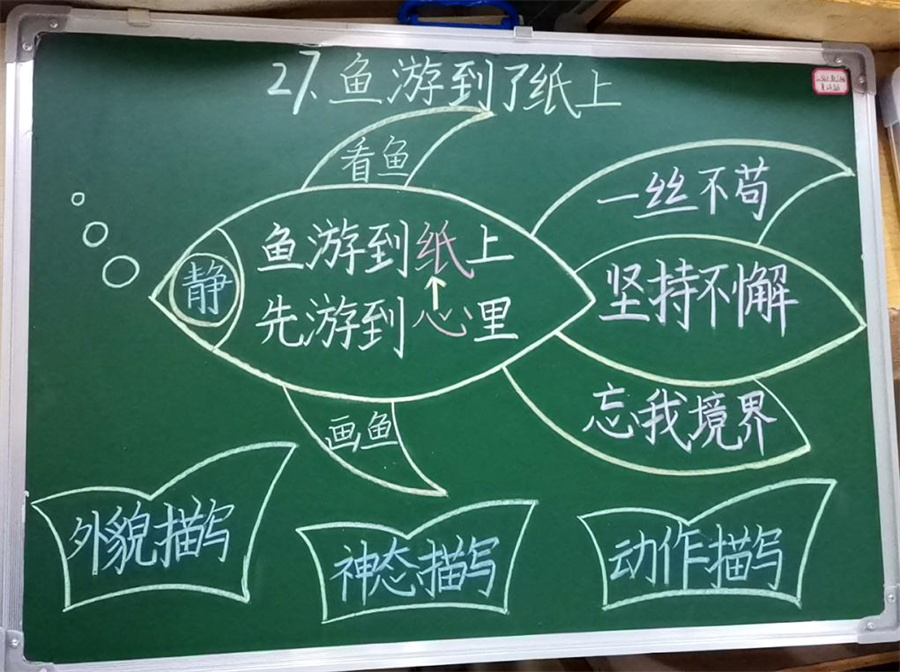 27.鱼游到了纸上
看鱼
一丝不苟
静
鱼游到纸上
先游到心里
坚持不懈
画鱼
忘我境界
外貌描写
神态描写
动作描写